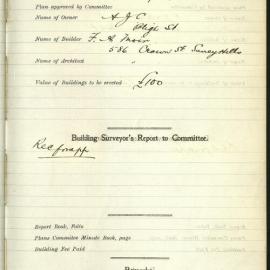 Plan approved by Committee
Name of Owner A. J. C.
St
Name of Builder F. A. Moir
586 Crown St Surry Hills
Name of Architect "
Value of Buildings to be erected £100
Building Surveyor's Report to Committee.
Rec for app
Report Book, Folio
Plans Committee Minute Book, page
Building Fee Paid